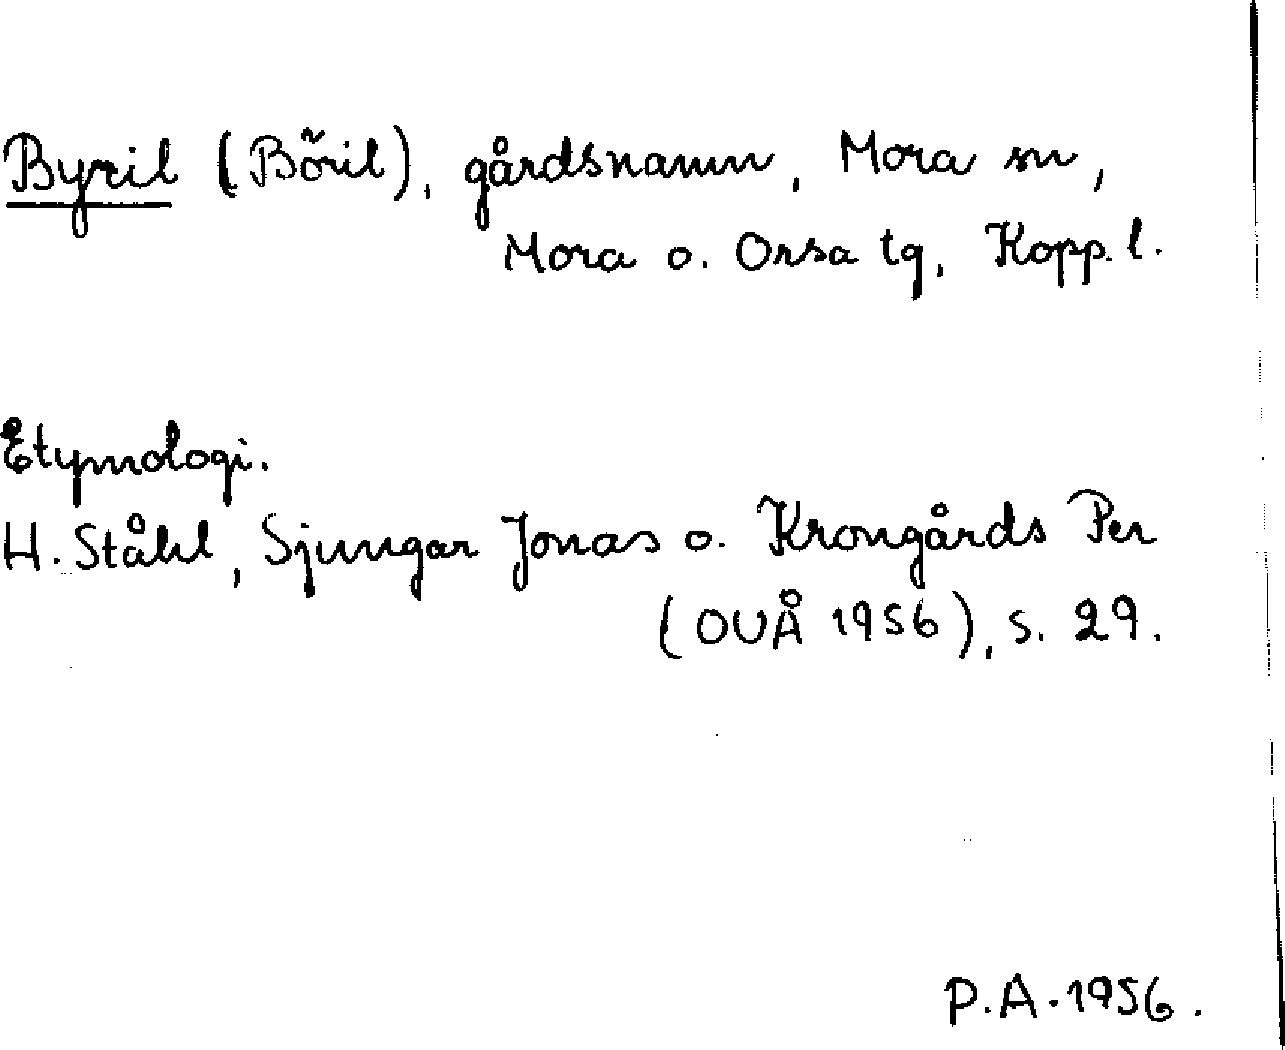 Byril (Böril), gårdsnamn, Mora sn,
Mora o. Orsa tg, Kopp. l.
Etymologi.
H. Ståhl, Sjungar Jonas o. Krongårds Per
(OUÅ 1956), s. 29.
P.A. 1956.